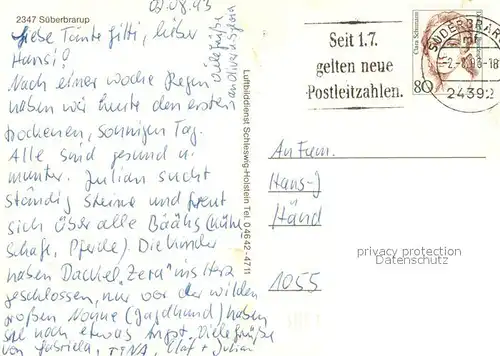 2347 Süberbrarup
02.08.93
Liebe Tante Gitti, lieber
Hansi!
Nach einer Woche Regen
haben wir heute den ersten
trockenen, sonnigen Tag.
Alle sind gesund u.
munter. Julian sucht
ständig Steine und freut
sich über alle Bäähs (Kühe,
Schafe, Pferde). Die Kinder
haben Dackel „Zera" ins Herz
geschlossen, nur vor der wilden
großen Nonne (Jagdhund) haben
sie noch etwas Angst. Viele Grüße
von Gabriela, TINA, Olaf + Julian
viele Grüße
Luftbilddienst Schleswig-Holstein Tel. 04642-4711
Seit 1.7.
gelten neue
Postleitzahlen.
Clara Schumann
80
SÜDERBRARUP
-2.-8.93-18
24392
An Fam.
Hans-J
Händ
1055
privacy protection
Datenschutz